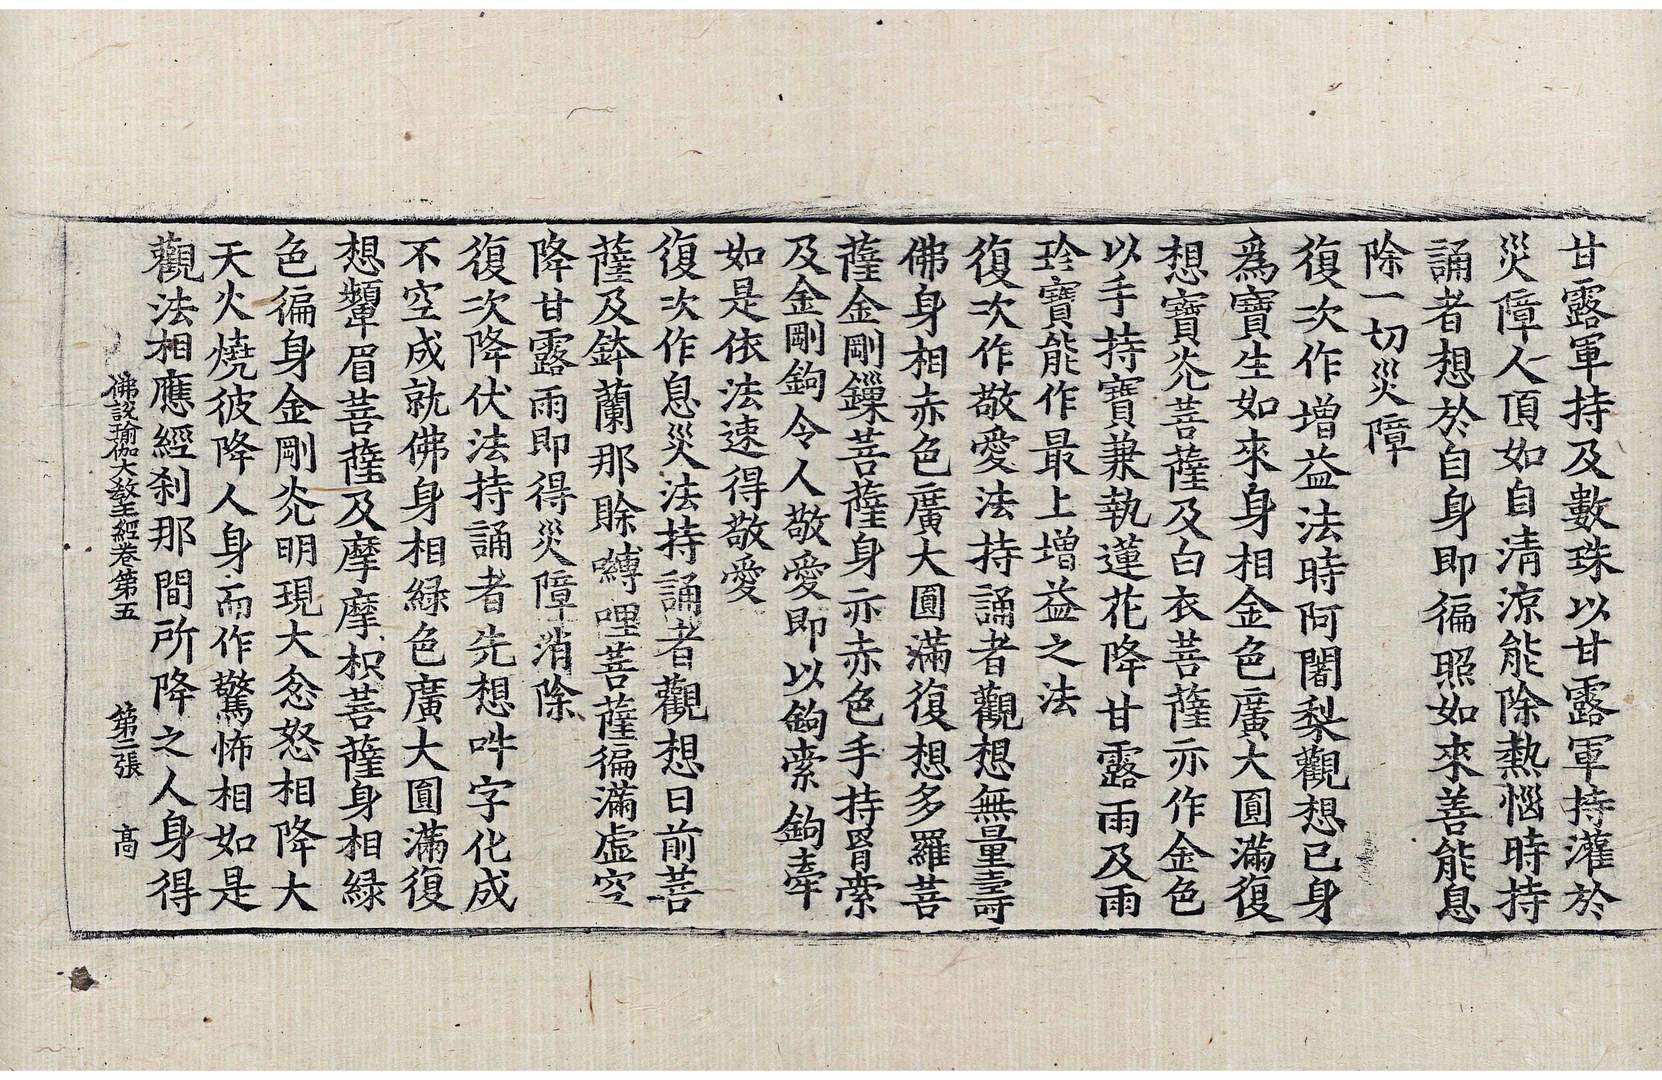 甘露軍持及數珠以甘露軍持灌於
災障人頂如自清涼能除熱惱時持
誦者想於自身即徧照如來善能息
除一切災障
復次作增益法時阿闍梨觀想已身
爲寶生如來身相金色廣大圓滿復
想寶光菩薩及白衣菩薩亦作金色
以手持寶兼執蓮花降甘露雨及雨
珍寶能作最上增益之法
復次作敬愛法持誦者觀想無量壽
佛身相赤色廣大圓滿復想多羅菩
薩金剛鏁菩薩身亦赤色手持罥索
及金剛鉤令人敬愛即以鉤索鉤牽
如是依法速得敬愛
復次作息災法持誦者觀想日前菩
薩及鉢蘭那賒嚩哩菩薩徧滿虛空
降甘露雨即得災障消除
復次降伏法持誦者先想吽字化成
不空成就佛身相緑色廣大圓滿復
想顰眉菩薩及摩摩枳菩薩身相緑
色徧身金剛光明現大忿怒相降大
天火燒彼降人身而作驚怖相如是
觀法相應經刹那間所降之人身得
佛說瑜伽大敎王經卷第五 第二張 高